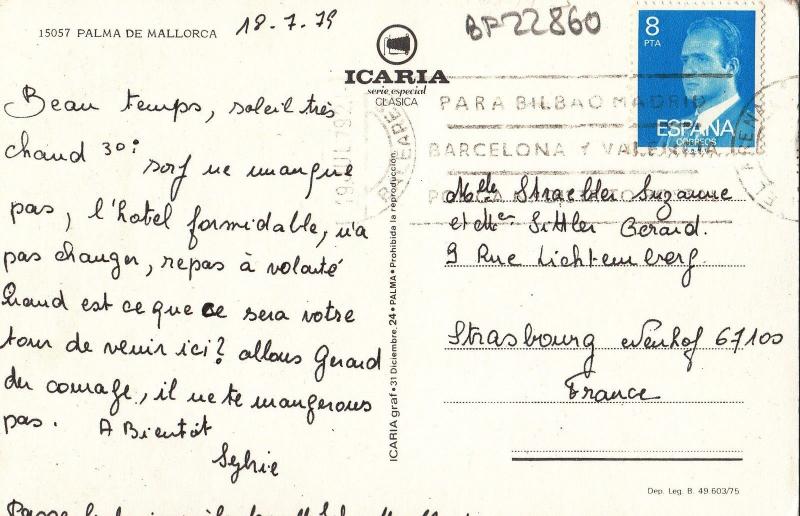 15057 PALMA DE MALLORCA
18.7.79
BF22860
ICARIA
serie especial
CLASICA
8
PTA
ESPAÑA
CORREOS
PARA BILBAO MADRID
BARCELONA Y VALENCIA
Beau temps, soleil très
chaud 30°
sorf ne mangue
pas, l'hotel formidable, n'a
pas changer, repas à volonté
Quand est ce que ce sera votre
tour de venir ici? allons Gerard
du courage, il ne te mangerons
pas. A Bientôt
Sylvie
Passe
ICARIA graf • 31 Diciembre, 24 • PALMA • Prohibida la reproducción.
Melle Straebler Suzanne
et Mer Sittler Gerard.
9 Rue Lichtemberg.
Strasbourg Neuhof 67100
France
Dep. Leg. B. 49.603/75